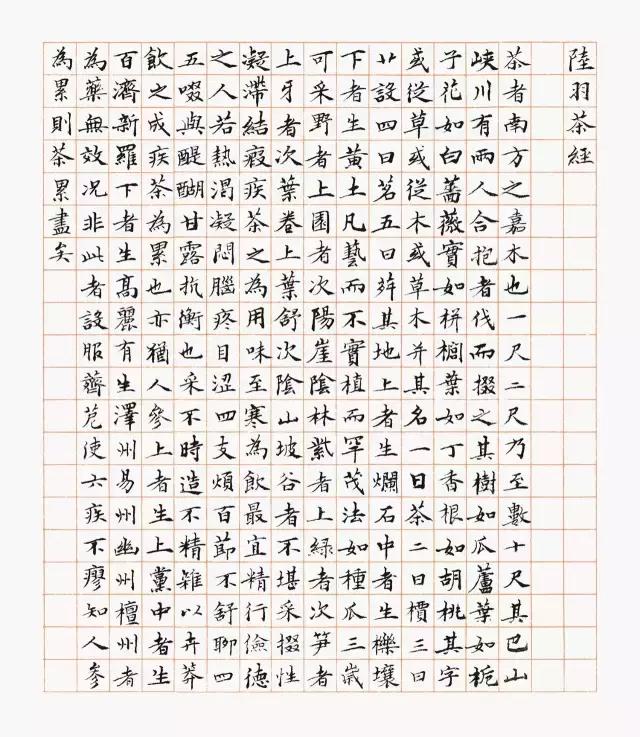 陸羽茶經
茶者南方之嘉木也一尺二尺乃至數十尺其巴山
峽川有兩人合抱者伐而掇之其樹如瓜蘆葉如梔
子花如白薔薇實如栟櫚葉如丁香根如胡桃其字
或從草或從木或草木并其名一曰茶二曰檟三曰
艹設四曰茗五曰荈其地上者生爛石中者生櫟壤
下者生黃土凡藝而不實植而罕茂法如種瓜三歲
可采野者上園者次陽崖陰林紫者上綠者次笋者
上牙者次葉卷上葉舒次陰山坡谷者不堪采掇性
凝滯結瘕疾茶之為用味至寒為飲最宜精行儉德
之人若熱渴凝悶腦疼目澀四支煩百節不舒聊四
五啜與醍醐甘露抗衡也采不時造不精雜以卉莽
飲之成疾茶為累也亦猶人參上者生上黨中者生
百濟新羅下者生高麗有生澤州易州幽州檀州者
為藥無效況非此者設服薺苨使六疾不瘳知人參
為累則茶累盡矣